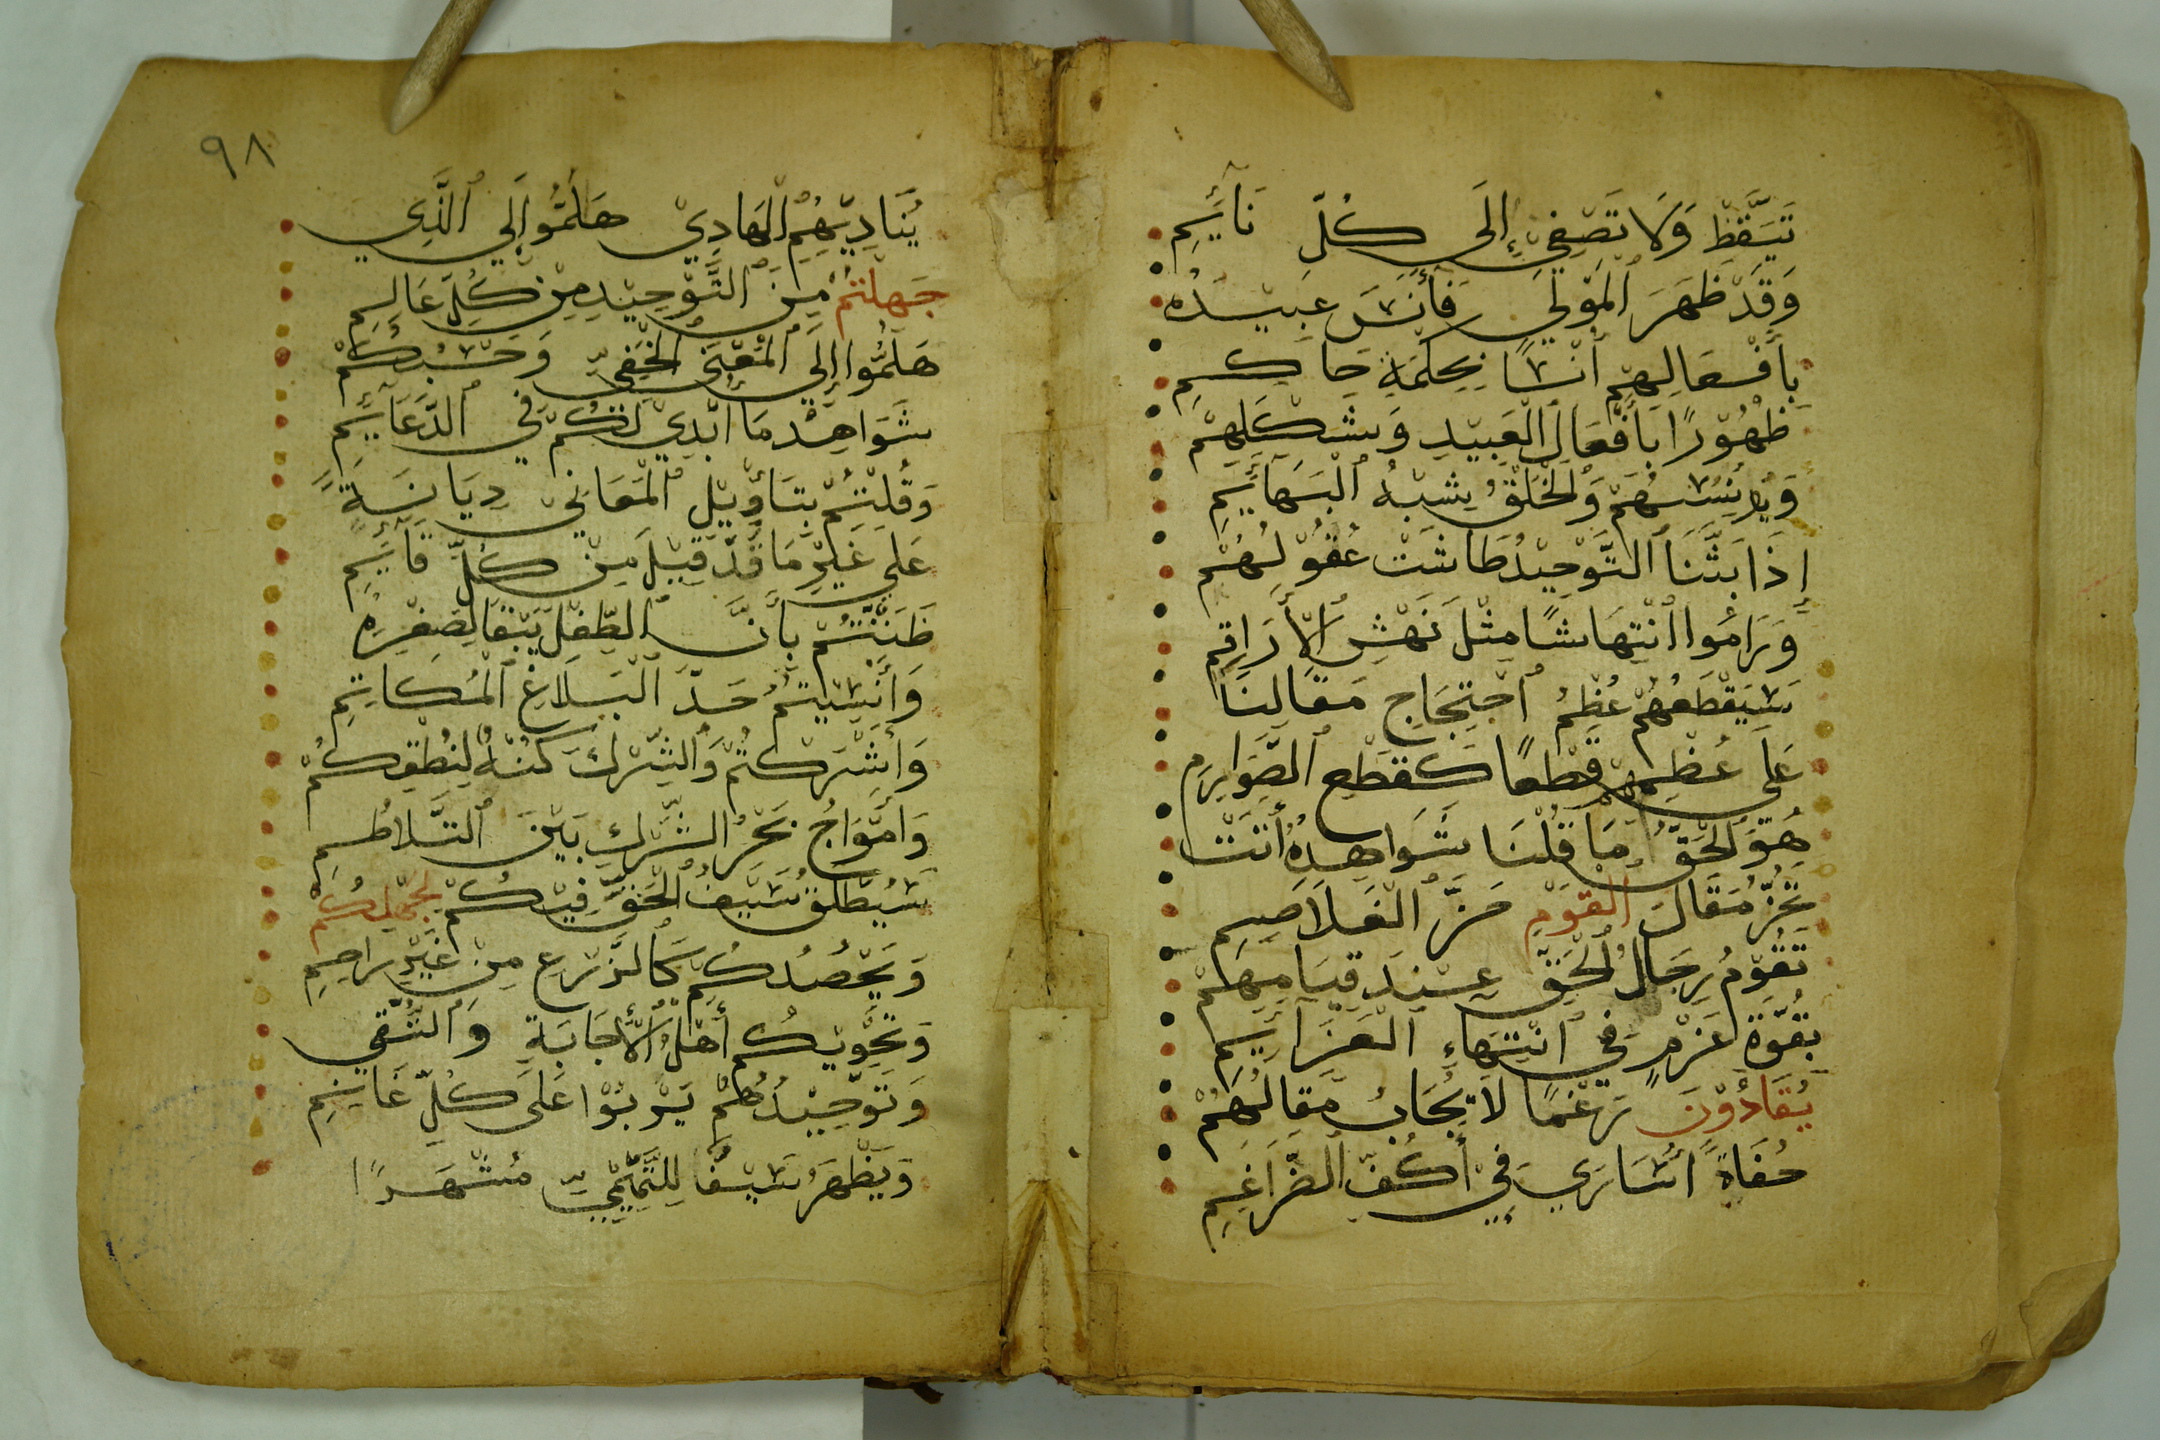 تَيَقَّظْ وَلَا تَصْغِيْ إِلَى كُلِّ نَائِمِ
وَقَدْ ظَهَرَ الْمَوْلَى فَأَنَسَ عَبِيْدَهُ
بِأَفْعَالِهِمْ أُنْسًا بِحِكْمَةِ حَاكِمِ
ظُهُوْرًا بِأَفْعَالِ الْعَبِيْدِ وَشِكْلِهِمْ
وَيُؤْنِسُهُمْ وَالْخَلْقُ شِبْهُ الْبَهَائِمِ
إِذَا بَثَّنَا التَّوْحِيْدُ طَاشَتْ عُقُوْلُهُمْ
وَرَامُوا انْتِهَاشًا مِثْلَ نَهْشِ الْأَرَاقِمِ
سَيَقْطَعُهُمْ عُظْمُ احْتِجَاجِ مَقَالِنَا
عَلَى عُظْمِهِمْ قَطْعًا كَقَطْعِ الصَّوَارِمِ
هُوَ الْحَقُّ مَا قُلْنَا شَوَاهِدُهُ أَتَتْ
تَحُزُّ مَقَالَ الْقَوْمِ حَزَّ الْغَلَاصِمِ
تَقُوْمُ رِجَالُ الْحَقِّ عِنْدَ قِيَامِهِمْ
بِقُوَّةِ عَزْمٍ فِي انْتِهَاءِ الْعَزَائِمِ
يُقَادُوْنَ رَغْمًا لَا يُجَابُ مَقَالُهُمْ
حُفَاةً أُسَارَى فِيْ أَكُفِّ الضَّرَاغِمِ
٩٨
يُنَادِيْهُمُ الْهَادِيْ هَلُمُّوا إِلَى الَّذِي
جَهِلْتُمْ مِنَ التَّوْحِيْدِ مِنْ كُلِّ عَالِمِ
هَلُمُّوا إِلَى الْمَعْنَى الْخَفِيِّ وَحَسْبُكُمْ
شَوَاهِدَ مَا أَبْدِيْ لَكُمْ فِي الدَّعَائِمِ
وَقُلْتُمْ بِتَأْوِيْلِ الْمَعَانِيْ دِيَانَةً
عَلَى غَيْرِ مَا قَدْ قِيْلَ مِنْ كُلِّ قَائِمِ
ظَنَنْتُمْ بِأَنَّ الطِّفْلَ يَبْقَا لِصِغْرِهْ
وَأُنْسِيْتُمُ حَدَّ الْبَلَاغِ الْمُكَاتِمِ
وَأَشْرَكْتُمُ وَالشِّرْكَ كُنْهُ لِنُطْقِكُمْ
وَأَمْوَاجُ بَحْرِ الشِّرْكِ بَيْنَ التَّلَاطُمِ
سَيُطْلَقُ سَيْفُ الْحَقِّ فِيْكُمْ لِجَهْلِكُمْ
وَيَحْصُدُكُمْ كَالزَّرْعِ مِنْ غَيْرِ رَاحِمِ
وَتَحْوِيْكُمُ أَهْلُ الْإِجَابَةِ وَالتُّقَى
وَتَوْحِيْدُهُمْ يَرْبُوْا عَلَى كُلِّ غَانِمِ
وَيَظْهَرُ سَيْفًا لِلتَّمِيْمِيِّ مُشْهَرًا